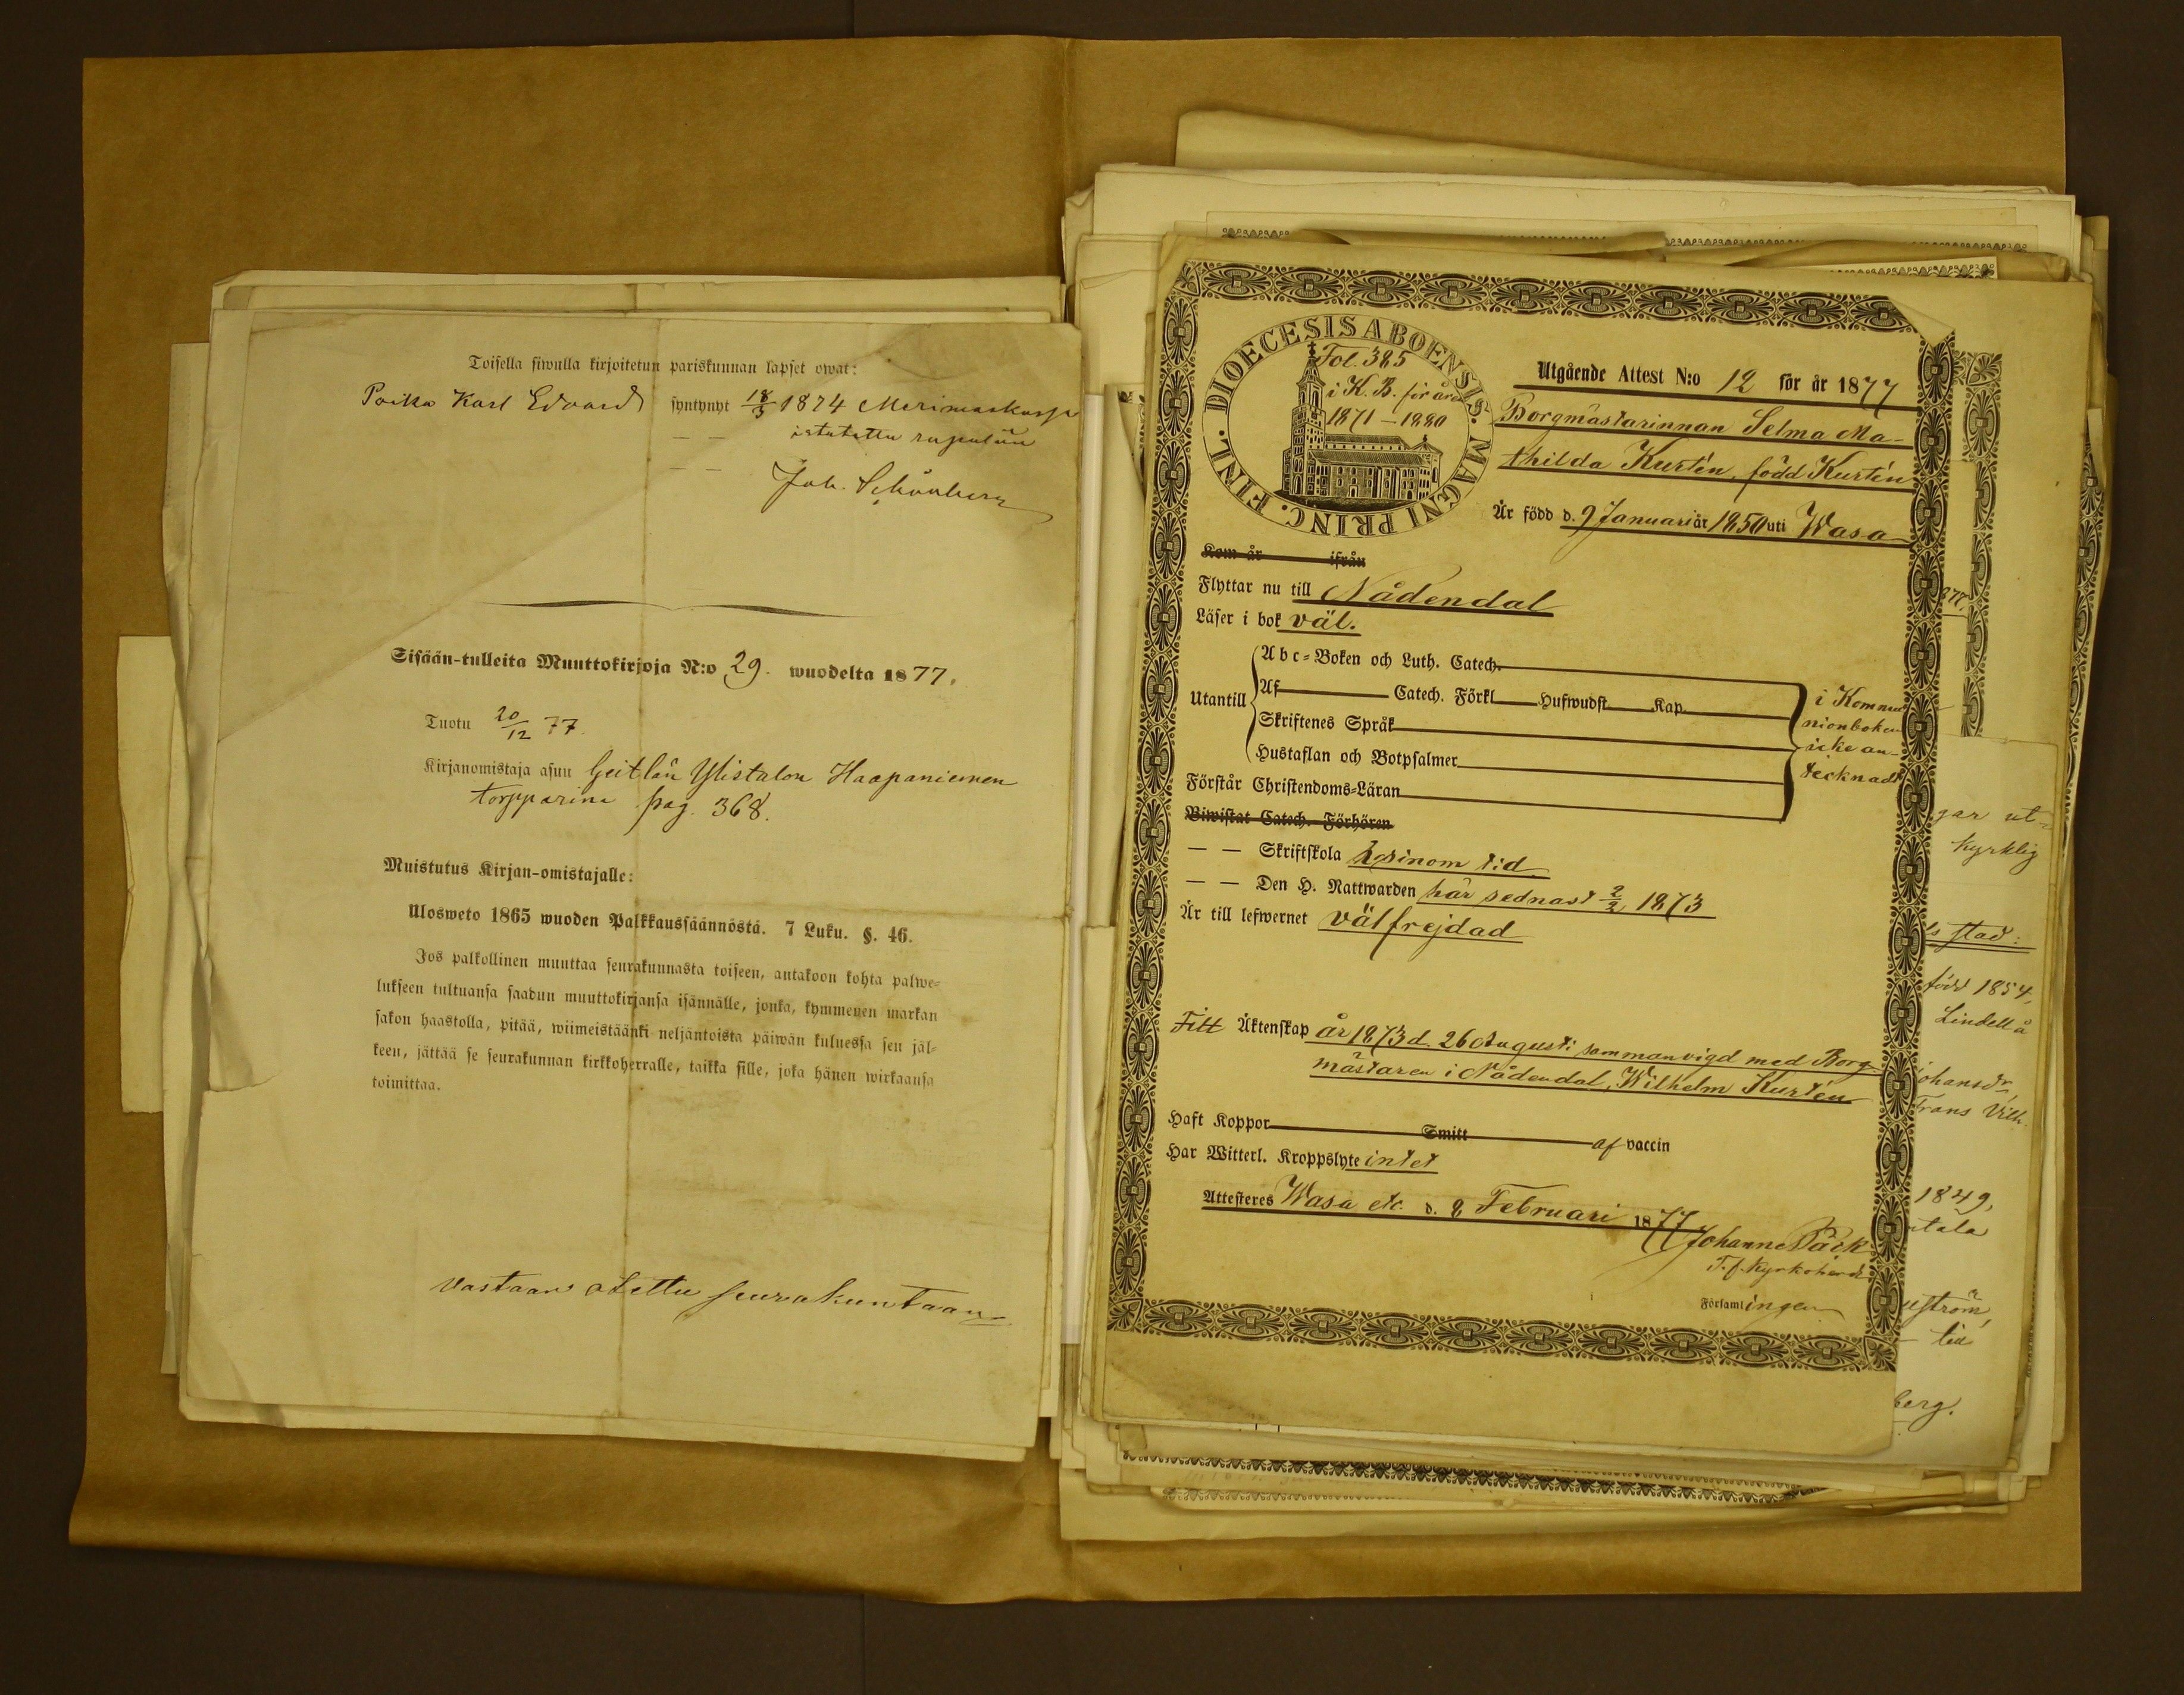 Toisella siwulla kirjoitetun pariskunnan lapset owat:
Poika Karl Edvard syntynyt 18/5 1874 Merimaskussa
— — istutettu rupuliin
— —
Joh. Schönberg
Sisään-tulleita Muuttokirjoja N:o 29. wuodelta 1877.
Tuotu 20/12 77.
Kirjanomistaja asuu Ylistalon Haapaniemen
torpparina pag. 368.
Muistutus Kirjan-omistajalle:
Ulosweto 1865 wuoden Palkkaussäännöstä. 7 Luku. §. 46.
Jos palkollinen muuttaa seurakunnasta toiseen, antakoon kohta palwe-
lukseen tultuansa saadun muuttokirjansa isännälle, jonka, kymmenen markan
sakon haastolla, pitää, wiimeistäänki neljäntoista päiwän kuluessa sen jäl-
keen, jättää se seurakunnan kirkkoherralle, taikka sille, joka hänen wirkaansa
toimittaa.
Vastaan otettu seurakuntaan
DIOECESIS ABOENSIS. MAGNI PRINC. FINL.
Fol. 385
i K. B. för åren
1871–1880
Utgående Attest N:o 12 för år 1877
Borgmästarinnan Selma Ma-
thilda Kurtén, född Kurtén
Är född d. 9 Januari år 1850 uti Wasa
Kom år ifrån
Flyttar nu till Nådendal
Läser i bok väl.
Utantill
Abc-Boken och Luth. Catech.
Af Catech. Förkl Hufwudst Kap.
Skriftenes Språk
Hustaflan och Botpsalmer
Förstår Christendoms-Läran
i Kommu
nionboken
icke an-
tecknadt
Biwistat Catech. Förhören
— — Skriftskola i sinom tid
— — Den H. Nattwarden här sednast 2/2 1873
Är till lefwernet välfrejdad
Till Äktenskap år 1873 d. 26 Augusti sammanvigd med Borg-
mästaren i Nådendal, Wilhelm Kurtén
Haft Koppor Smitt af vaccin
Har Witterl. Kroppslyte intet
Attesteres Wasa etc. d. 2 Februari 1877
Johannes Bäck
T. f. Kyrkoherde
Församlingen
877.
gar ut-
kyrklig
ls stad:
född 1854,
Lindell å
Johansdr,
Frans Vilh.
1849,
ntala
uström,
tid
berg.